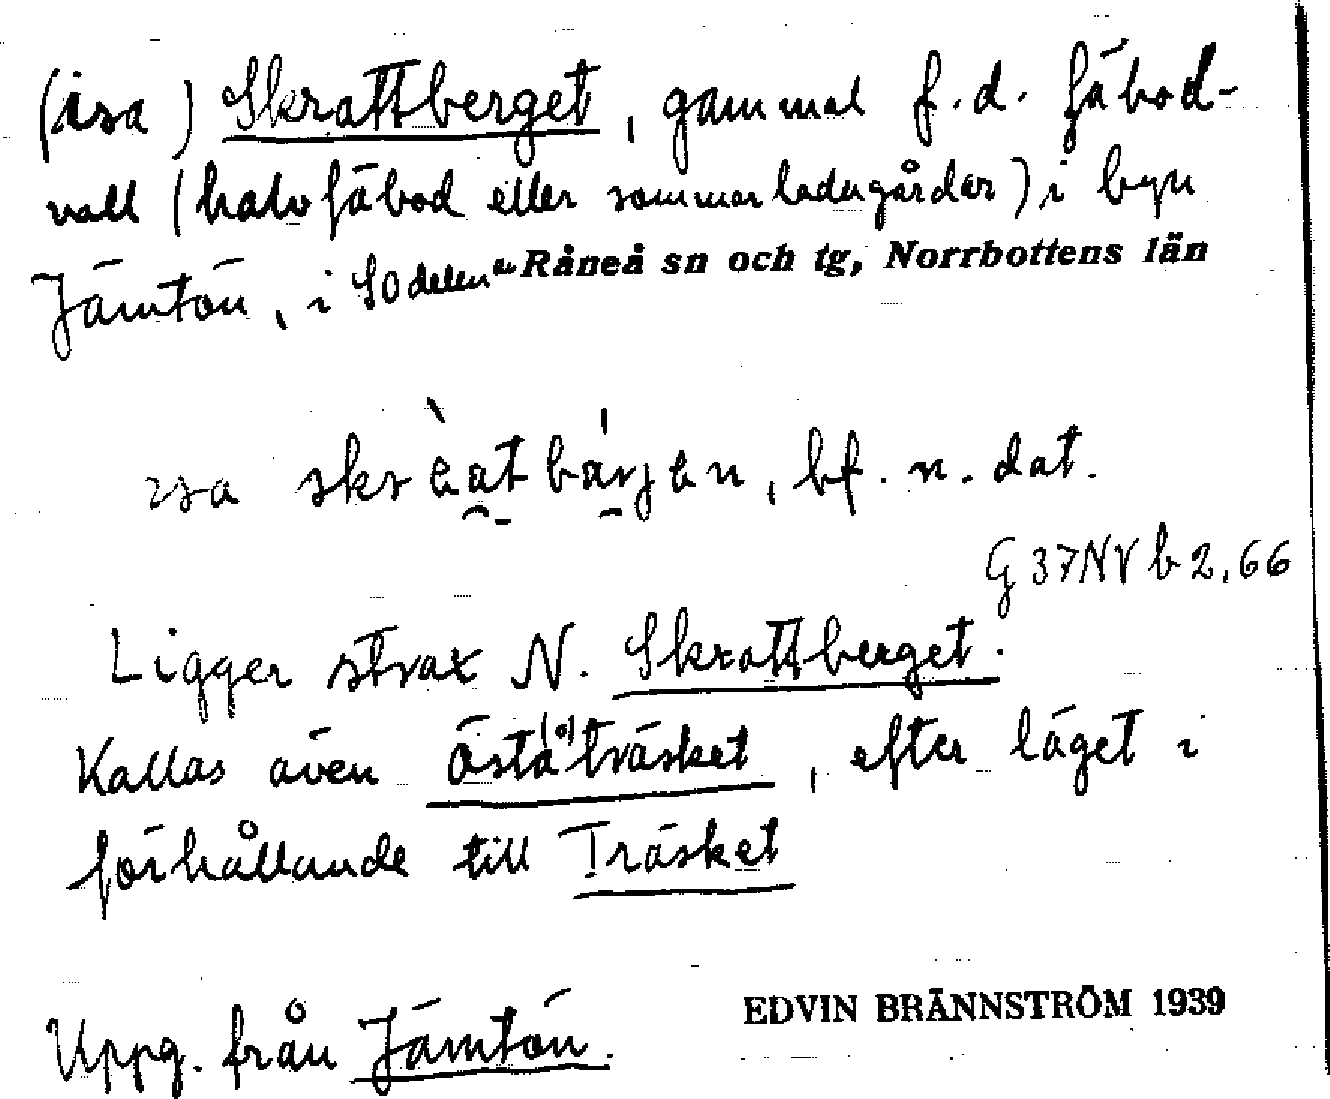 (isa) Skrattberget, gammal f.d. fäbod-
vall (halvfäbod eller sommarladugårdar) i byn
Jämtön, i SOdelen av Råneå sn och tg, Norrbottens län
isa skrèatbárjen, bf. n. dat.
G 37NV b 2,66
Ligger strax N. Skrattberget.
Kallas även östa(º)träsket, efter läget i
förhållande till Träsket
Uppg. från Jämtön.
EDVIN BRÄNNSTRÖM 1939